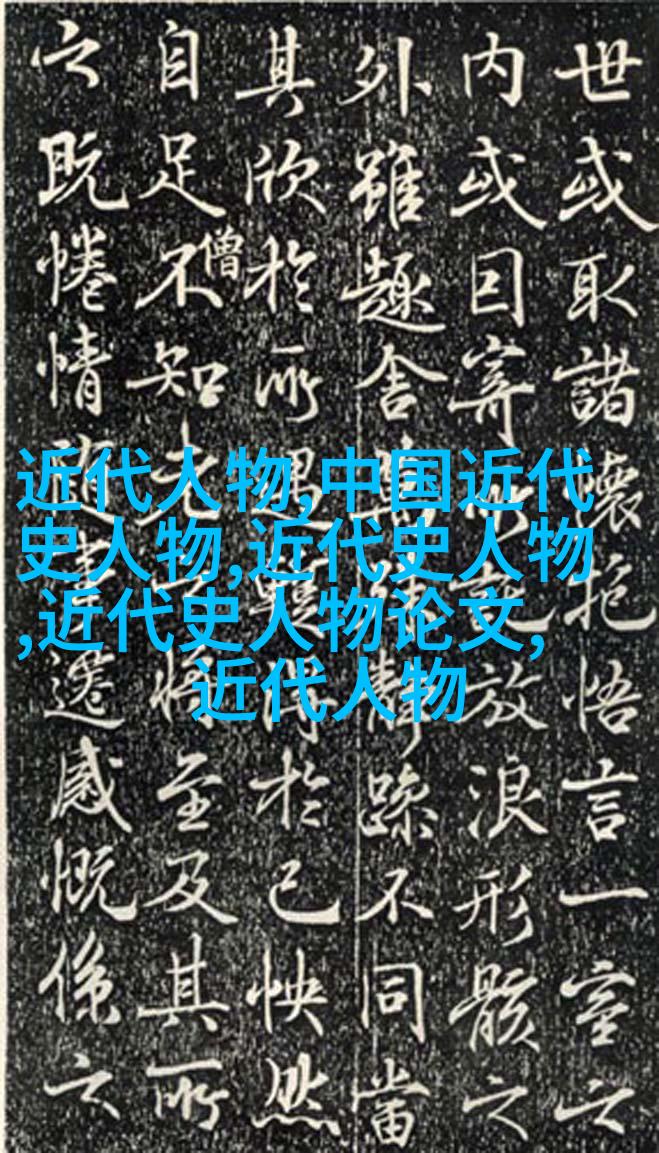 近代人物,中国近代
史人物,近代史人物
,近代史人物论文,
近代人物
世或取諸懷抱悟言一室之
内或因寄所託放浪形骸之
外雖趣舍萬殊靜躁不同當
其欣於所遇得於己怏然
自足不知老之將至及其所
僧
之既惓情隨事遷感慨係之